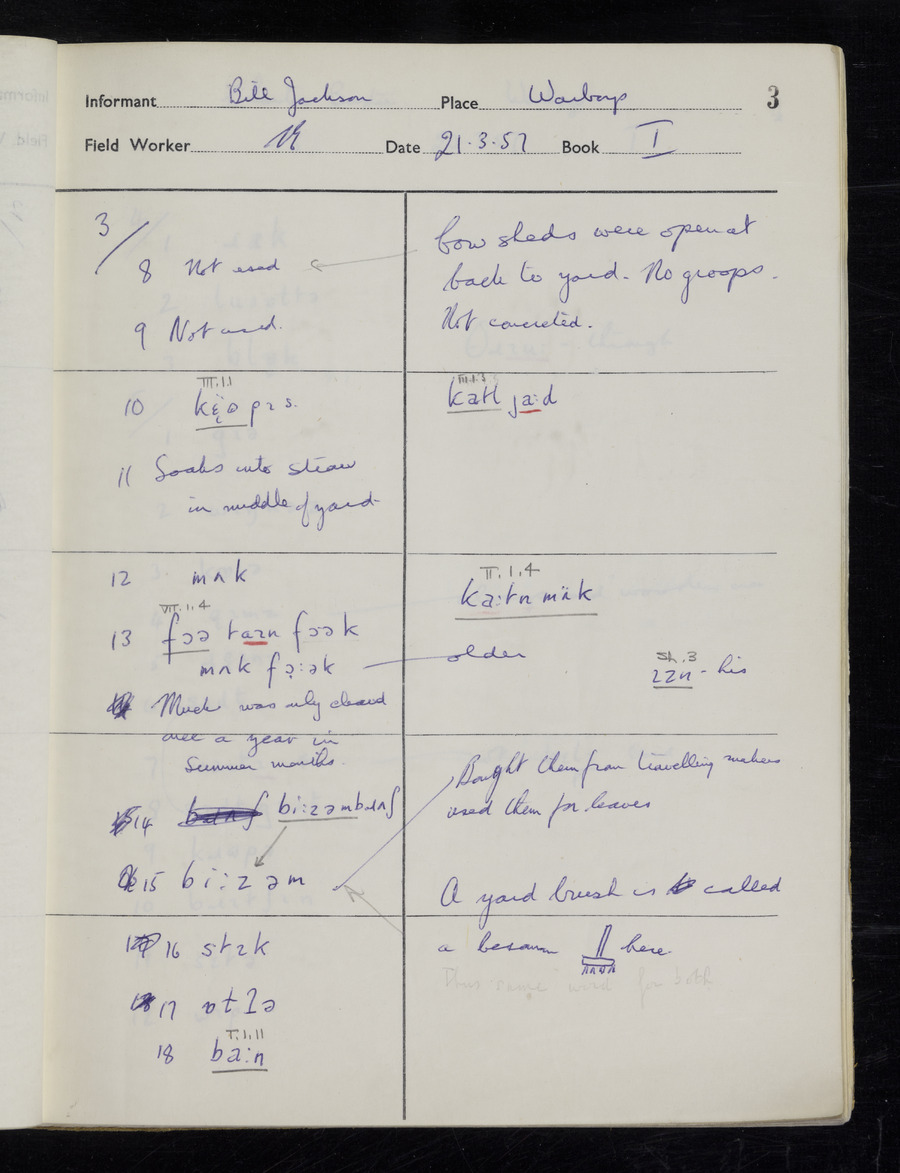 Informant Bill Jackson Place Warboys 3
Field Worker Date 21.3.57 Book I
3/
8 Not used
9 Not used.
Cow sheds were open at
back to yard. No groops.
Not concreted.
III.1.1
10
11 Soaks into straw
in middle of yard
III.1.3
jaːd
12 mʌk
VII.1.4
13 fɔə
mʌk
older
Much was only cleared
once a year in
Summer months.
II.1.4
Sh.3
- his
14 biːzəm
15 biːzəm
Bought them from travelling makers
used them for leaves
A yard brush is called
a besom here
Thus same word for both
16 stɪk
17
I.1.11
18 baːn